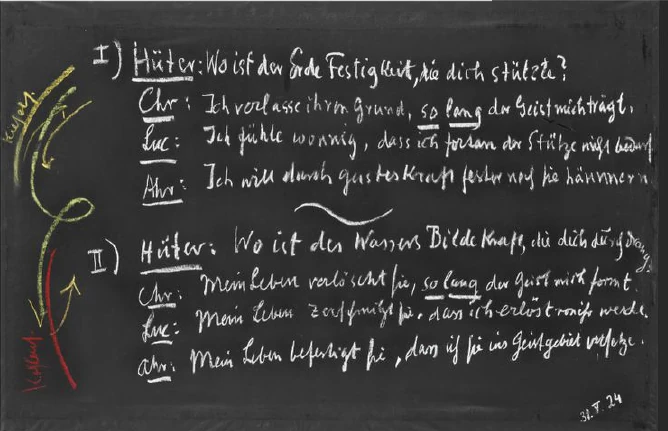 I) Hüter: Wo ist der Erde Festigkeit, die dich stützte?
Chr: Ich verlasse ihren Grund, so lang der Geist mich trägt.
Luc: Ich fühle wonnig, dass ich fortan der Stütze nicht bedarf
Ahr: Ich will durch Geisteskraft fester noch sie hämmern
II) Hüter: Wo ist des Wassers Bildekraft, die dich durchdrang?
Chr: Mein Leben verlöscht sie, so lang der Geist mich formt.
Luc: Mein Leben zerschmilzt sie, dass ich erlöst von ihr werde.
Ahr: Mein Leben befestigt sie, dass ich sie ins Geistgebiet versetze.
31.V.24